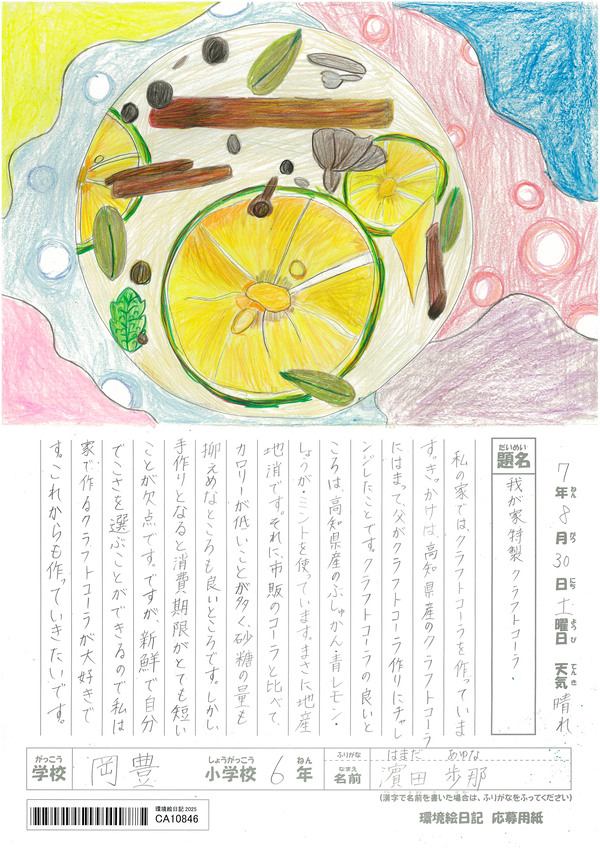 7年8月30日土曜日 天気 晴れ
ねん がつ にち ようび てんき
だいめい
題名
我が家特製クラフトコーラ
私の家ではクラフトコーラを作っていま
す。きっかけは、高知県産のクラフトコーラ
にはまって、父がクラフトコーラ作りにチャレ
ンジしたことです。クラフトコーラの良いと
ころは、高知県産のぶしゅかん・青レモン・
しょうが・ミントを使っています。まさに地産
地消です。それに、市販のコーラと比べて、
カロリーが低いことが多く、砂糖の量も
抑えめなところも良いところです。しかし、
手作りとなると消費期限がとても短い
ことが欠点です。ですが、新鮮で自分
でこさを選ぶことができるので私は
家で作るクラフトコーラが大好きで
す。これからも作っていきたいです。
がっこう しょうがっこう ねん ふりがな はまだ あゆな
学校 岡豊 小学校 6年 なまえ 名前 濵田 歩那
(漢字で名前を書いた場合は、ふりがなをふってください)
環境絵日記 2025
CA10846
環境絵日記 応募用紙